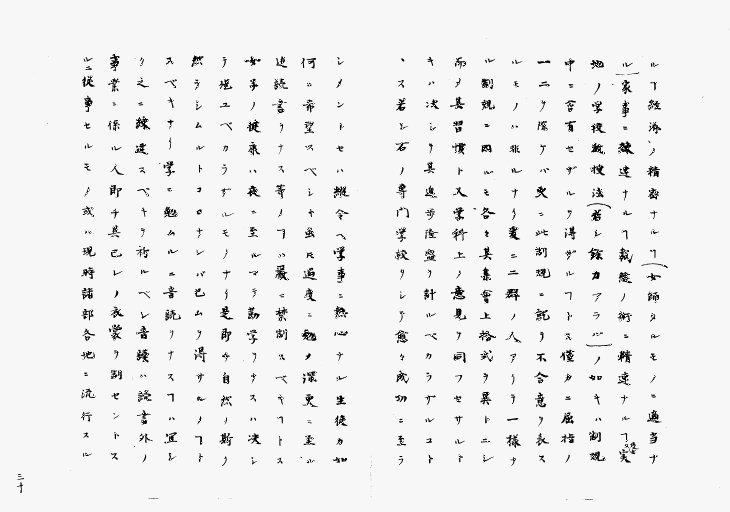 ルヿ経済ノ精密ナルヿ(女師タルモノニ適当ナ
ル)家事ニ練達ナルヿ裁縫ノ術ニ精達ナルヿ実
地ノ学校教授法(若シ余力アラバ)ノ如キハ制規
中ニ含有セザルヲ得ザルヿトス僅カニ屈指ノ
一二ヲ除ケバ更ニ此制規ニ就テ不合意ヲ表ス
ルモノハ非ルナリ爰ニ二群ノ人アリテ一様ナ
ル制規ニ因ルモ各其集會上格式ヲ異ニシ
而メ其習慣ト又学科上ノ意見ヲ同フセザルト
キハ决シテ其進歩隆盛ヲ計ルベカラザルコト
ス若シ右ノ専門学校ヲシテ愈々成功ニ至ラ
シメントセハ縦令ヘ学事ニ熱心ナル生徒カ如
何ニ希望スベシキ虽𪜈過度ニ勉メ深更ニ至ル
迠読書ヲナス等ノヿハ最ニ禁制スベキヿトス
女子ノ健康ハ夜ニ至ルマテ勤学ヲナスハ决シ
テ堪ユベカラザルモノナリ是即チ自然ノ斯ク
然ラシムルトコロナレバ已ムヲ得サルノヿト
スベキナリ学ニ勉ムルニ音読ヲナスヿハ宜シ
ク之ニ練達スベキヲ祈ルベシ音読ハ読書外ノ
事業ニ係ル人即チ其己レノ衣裳ヲ制セントス
ルニ従事セルモノ或ハ現時諸部各地ニ流行スル
三十